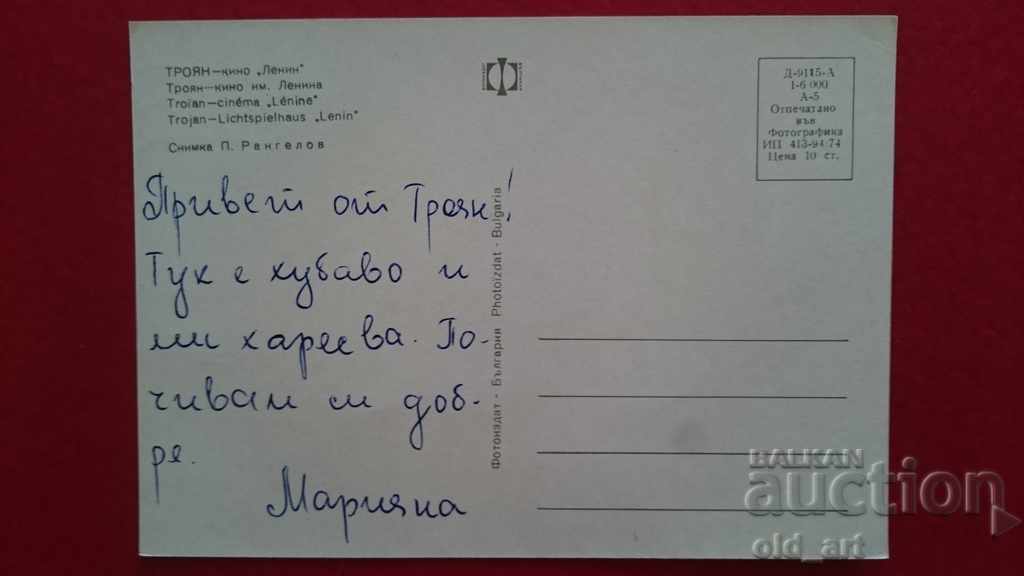 ТРОЯН—кино „Ленин"
Троян—кино им. Ленина
Troïan—cinéma „Lénine"
Trojan—Lichtspielhaus „Lenin"
Снимка П. Рангелов
Д-9115-А
1-6 000
А-5
Отпечатано
във
Фотографика
ИП 413-94/74
Цена 10 ст.
Привет от Троян!
Тук е хубаво и
ми харесва. По-
чивам си доб-
ре.
Марияна
Фотоиздат - България Photoizdat - Bulgaria
BALKAN
auction
old_art